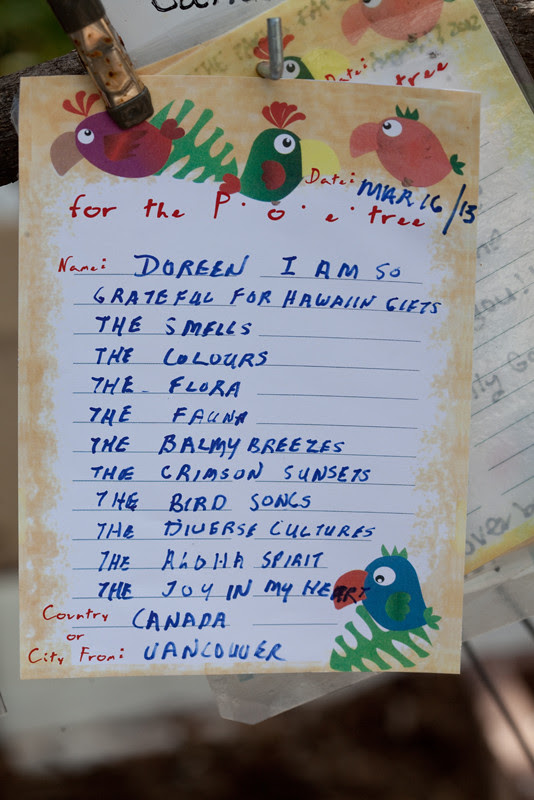 Date: MAR 16/13
for the P·o·e·tree
Name: DOREEN I AM SO
GRATEFUL FOR HAWAIIN GIFTS
THE SMELLS
THE COLOURS
THE FLORA
THE FAUNA
THE BALMY BREEZES
THE CRIMSON SUNSETS
THE BIRD SONGS
THE DIVERSE CULTURES
THE ALOHA SPIRIT
THE JOY IN MY HEART
Country CANADA
or
City From: VANCOUVER
Date:
tree